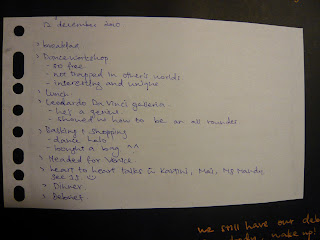 12 december 2010
> breakfast
> Dance workshop
- so free
- not trapped in other's worlds
- interesting and unique
> Lunch
> Leonardo Da Vinci galleria
- he's a genius
- showed us how to be an all rounder
> Busking & shopping
- dance halo
- bought a bag ^^
> Headed for Venice
> heart to heart talks
> Dinner
> Debrief
we still have our deb
lady, wake up!